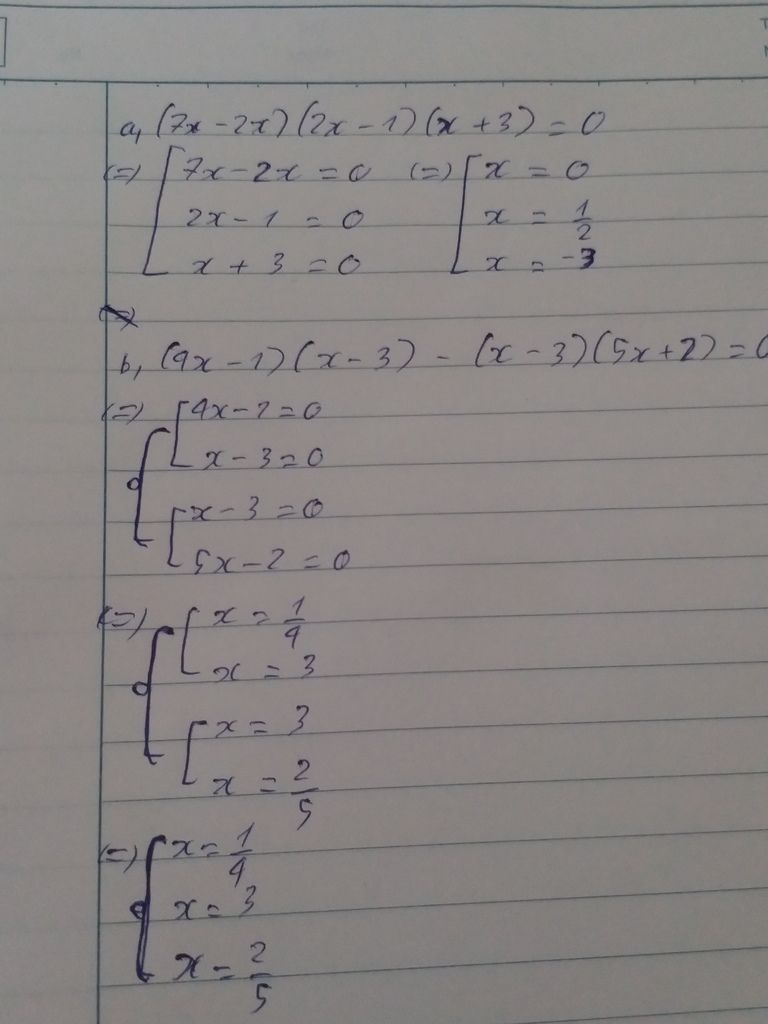 a, (7x-2x)(2x-1)(x+3)=0
(=) [7x-2x=0 (=) [x=0
2x-1=0 x=1/2
x+3=0 x=-3
b, (4x-1)(x-3)-(x-3)(5x+2)=0
(=) {[4x-1=0
x-3=0
[x-3=0
5x-2=0
(=) {[x=1/4
x=3
[x=3
x=2/5
(=) {x=1/4
x=3
x=2/5